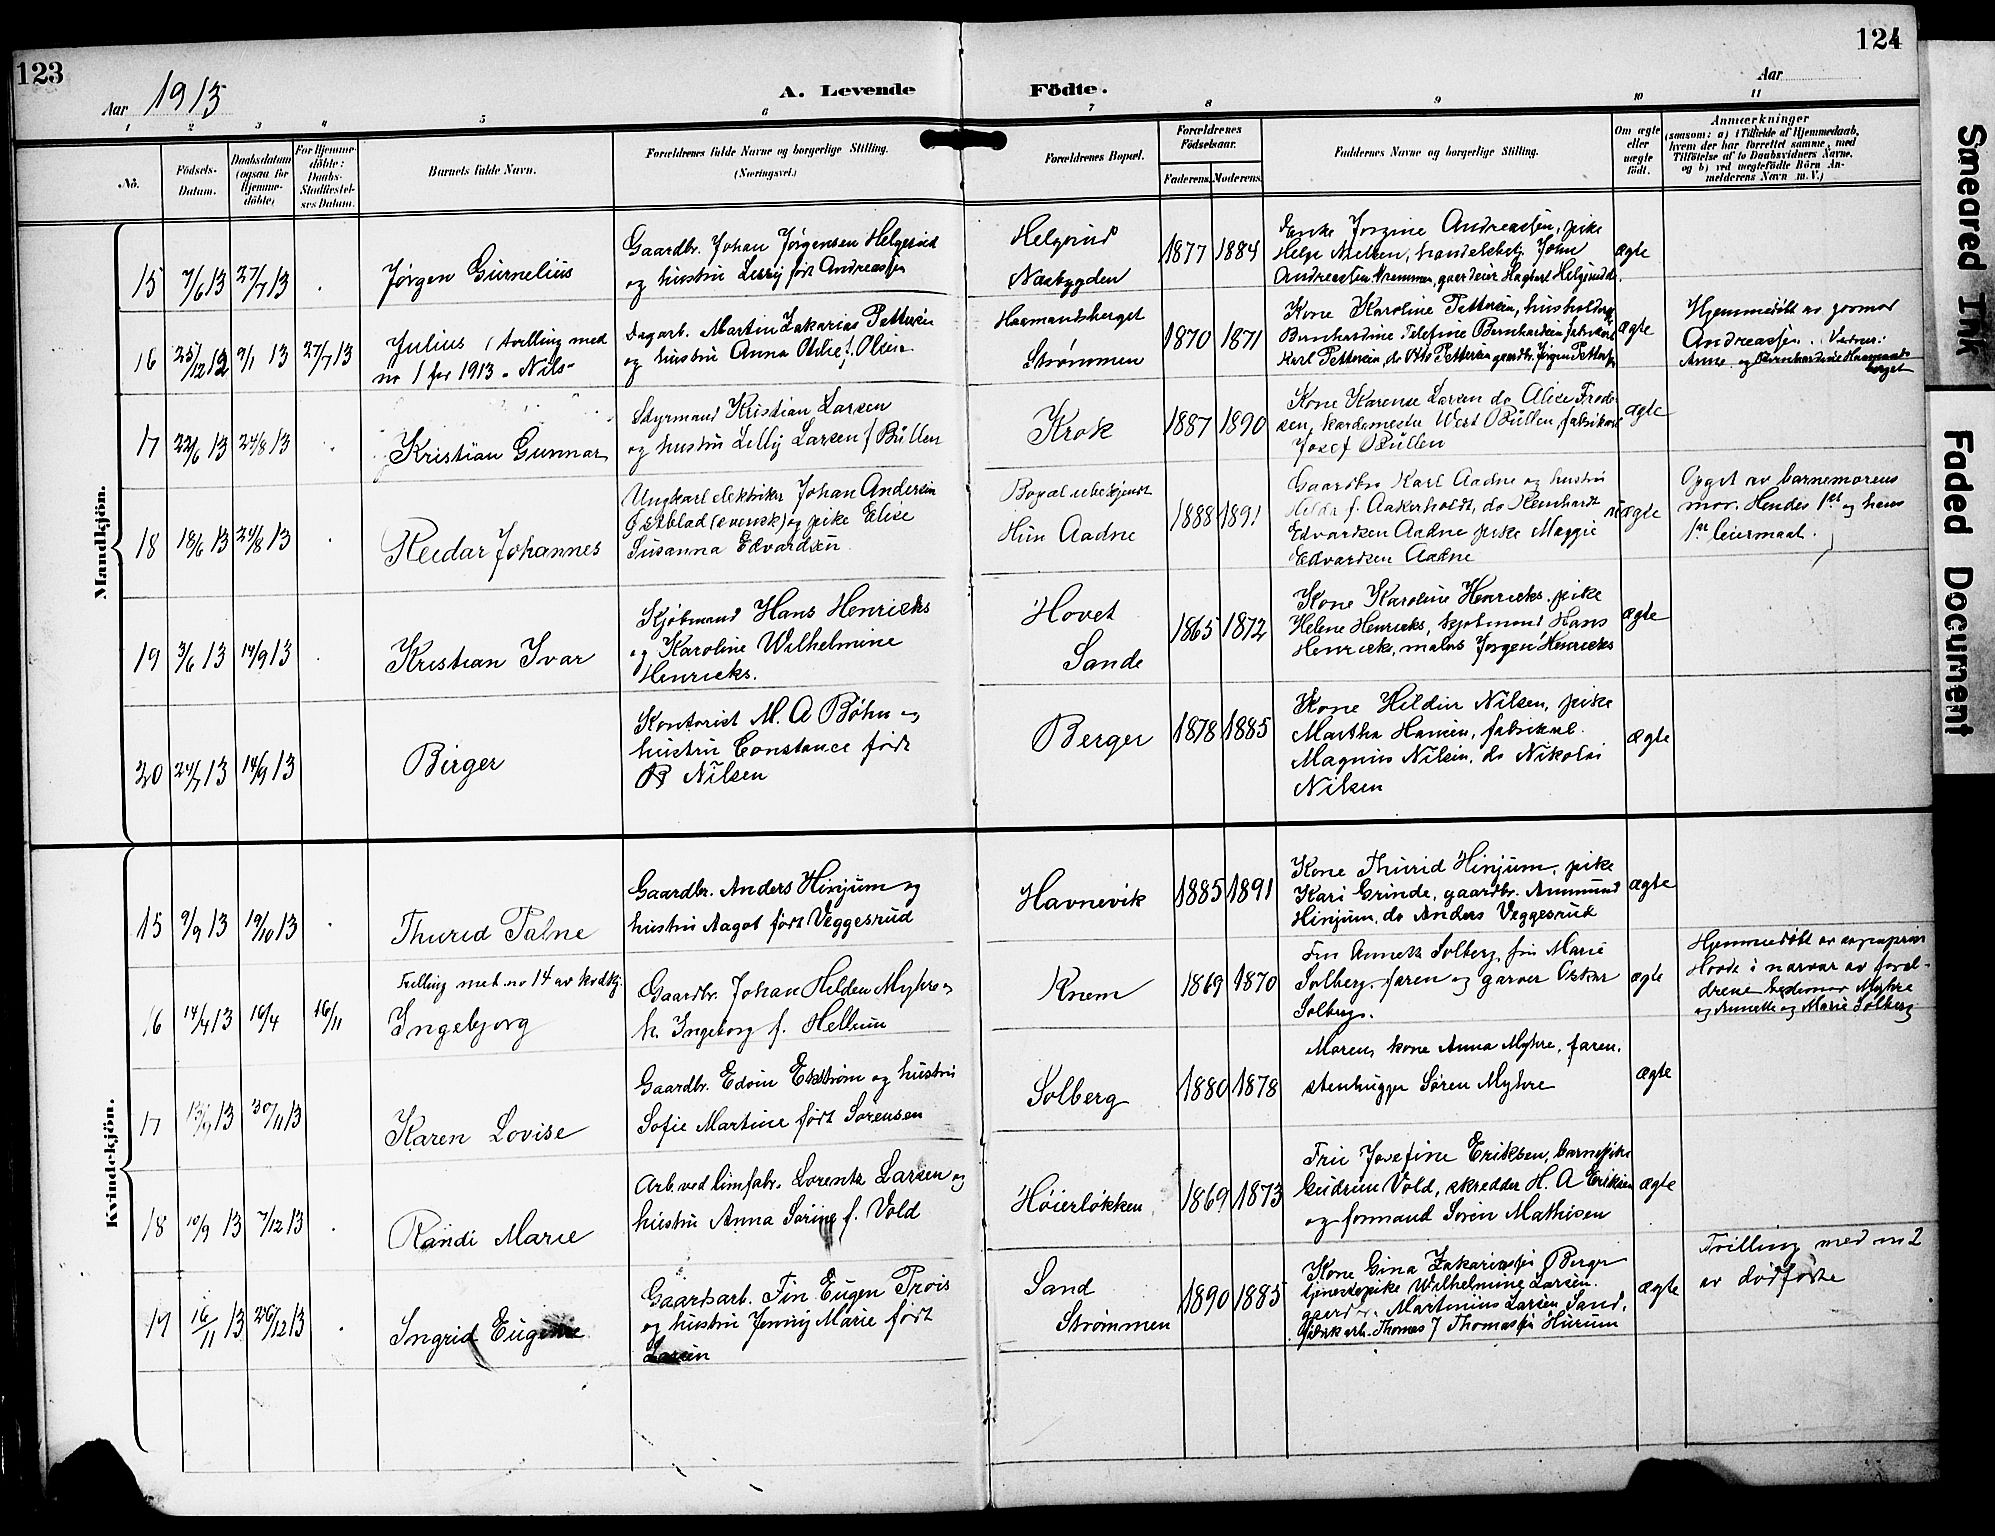 123
124
Aar 1913
A. Levende
Födte.
Aar
1 2 3 4 5 6 7 8 9 10 11
No.
Födsels-
Datum.
Daabsdatum
(ogsaa for
Hjemme-
döbte)
For Hjemme-
döbte:
Daabs-
Stadfæstel-
ses Datum.
Barnets fulde Navn.
Forældrenes fulde Navne og borgerlige Stilling.
(Næringsvei.)
Forældrenes Bopæl.
Forældrenes
Födselsaar.
Faderens. Moderens.
Faddernes Navne og borgerlige Stilling.
Om ægte
eller
uægte
födt.
Anmærkninger
(saasom: a) i Tilfælde af Hjemmedaab,
hvem der har forrettet samme, med
Tilföielse af to Daabsvidners Navne,
og b) ved uegtefödte Börn An-
melderens Navn m. V.)
Mandkjön.
15 7/6 13 27/7 13
Jørgen Gurnelius
Gaardbr. Johan Jørgensen Helgerud
og hustru Lussy født Andreassen
Helgerud
Nasbygden
1877 1884
Enke Jorgine Andreassen, pike
Helga Nielsen, handelsbetj. John
Andreassen Drammen, gaardeier Hagbart Helgerud
ægte
16 25/12 12 9/1 13 27/7 13
Julius (tvilling med
no 1 for 1913 - Nils-
Dagarb. Martin Zakarias Pettersen
og hustru Anna Otilie f. Olsen
Haamandsberget
Strømmen
1870 1871
Kone Karoline Pettersen, husholder
Bernhardine Telefine Bernhardsen fabrikarb
Karl Pettersen, do Otto Pettersen gaardbr. Jørgen Pettersen
ægte
Hjemmedøbt av jormor
Andreassen. Vidner:
Anna og Bernhardine Haamands
berget
17 22/6 13 24/8 13
Kristian Gunnar
Styrmand Kristian Larsen
og hustru Lelly Larsen f Büllen
Krok
1887 1890
Kone Karense Larsen do Alice Fred-
sen, kardemester Wert Büllen fabrikarb
Josef Büllen
ægte
18 18/6 13 24/8 13
Reidar Johannes
Ungkarl elektriker Johan Andersen
Østblad (svensk) og pike Elise
Susanna Edvardsen.
Bopæl ubekjendt
Hun Aadne
1888 1891
Gaardbr Karl Aadne og hustru
Hilda f. Aakerholdt, do Reinhardt
Edvardsen Aadne pike Maggie
Edvardsen Aadne
uægte
Opgit av barnemorens
mor. Hendes 1st og hans
1st leiermaal.
19 3/6 13 14/9 13
Kristian Ivar
Kjøbmand Hans Henricks
og Karoline Wilhelmine
Henricks.
Hovet
Sande
1865 1872
Kone Karoline Henricks. pike
Helene Henricks, kjøbmand Hans
Henricks, maler Jørgen Henricks
ægte
20 24/7 13 14/9 13
Birger
Kontorist M. A Bøhn og
hustru Constance født
B Nilsen
Berger
1878 1885
Kone Hildur Nilsen, pike
Martha Hansen, fabrikarb.
Magnus Nilsen, do Nikolai
Nilsen
ægte
Kvindekjön.
15 9/9 13 19/10 13
Thurid Palne
Gaardbr. Anders Hinjum og
hustru Aagot født Veggesrud
Havnevik
1885 1891
Kone Thurid Hinjum, pike
Kari Grinde, gaardbr. Ammund
Hinjum, do Anders Veggesrud
ægte
16 14/4 13 16/4 16/11
Tvilling med no 14 av kvdkj.
Ingebjorg
Gaardbr. Johan Helden Myhre og
h. Ingeborg f. Hellum
Knem
1869 1870
Fru Annette Solberg, frn Marie
Solberg faren og garver Oskar
Solberg.
ægte
Hjemmedøbt av sogneprest
Hoode i nærvær av foræl-
drene bedemor Myhre
og Annette og Marie Solberg
17 13/9 13 30/11 13
Karen Lovise
Gaardbr. Edvin Ekstrøm og hustru
Sofie Martine født Sørensen
Solberg
1880 1878
Moren, kone Anna Myhre, faren.
stenhugger Søren Myhre
ægte
18 10/9 13 7/12 13
Randi Marie
Arb. ved limfabr. Lorents Larsen og
hustru Anna Sørine f. Vold
Høierløkken
1869 1873
Fru Josefine Eriksen, barnepike
Gudrun Vold, skredder H. A Eriksen
og formand Søren Mathisen
ægte
19 16/11 13 26/12 13
Ingrid Eugenie
Gaardsarb. Fin Eugen Prois
og hustru Jenny Marie født
Larsen
Sand
Strømmen
1890 1885
Kone Gina Zakariassen Berger
tjenestepike Wilhelmine Larsen.
gaardbr. Martinius Larsen Sand.
fabrikarb. Thomas J Thomassen Hurum
ægte
Tvilling med no 2
av dødfødte
Smeared Ink
Faded Document